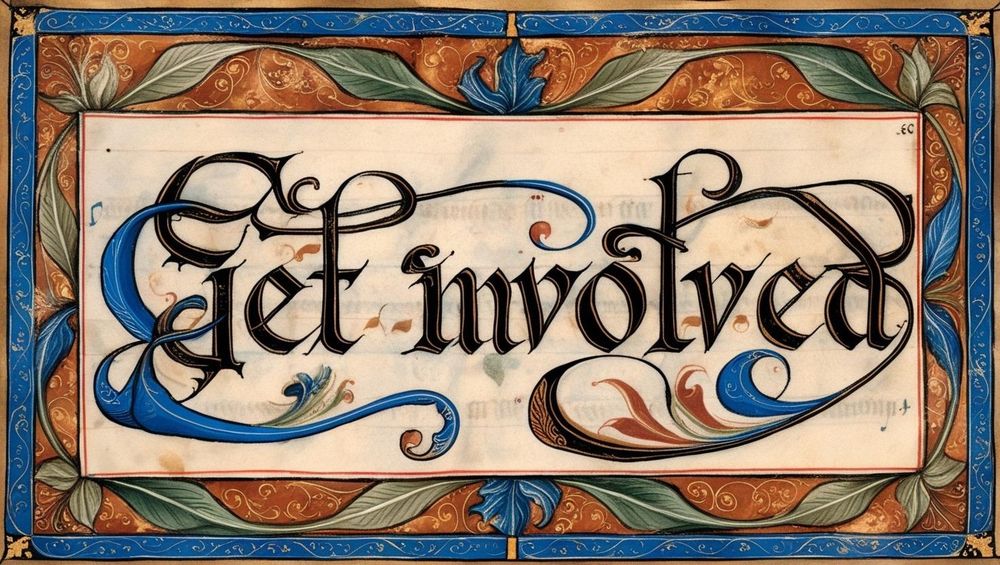 Get involved